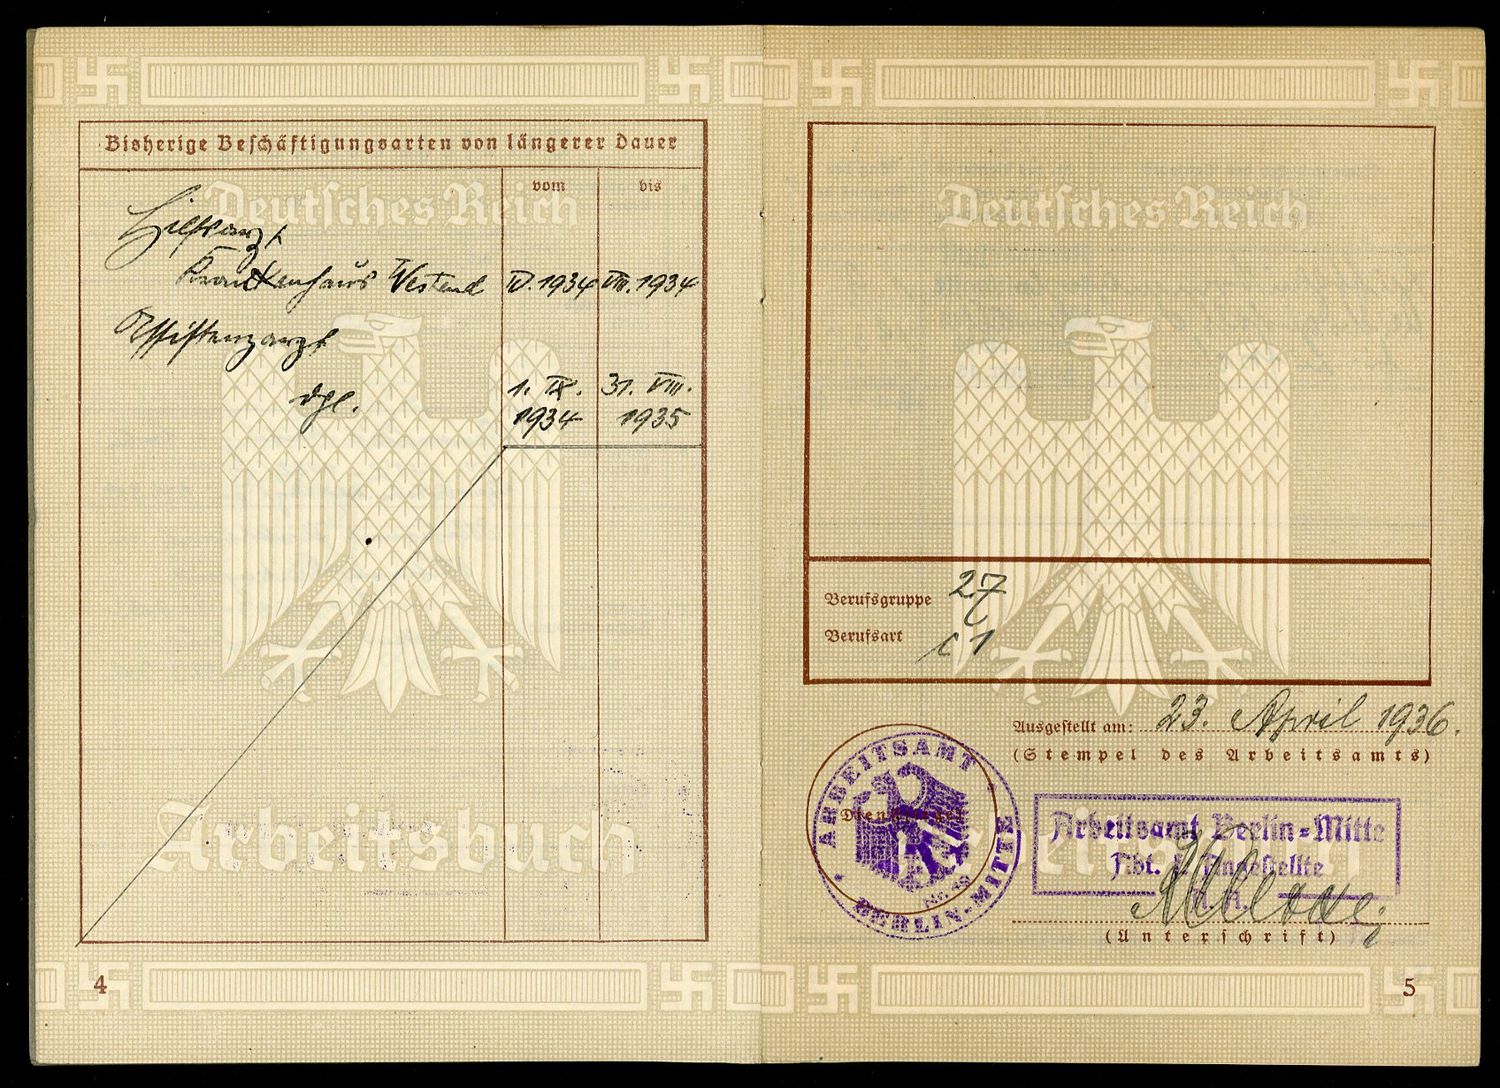 Bisherige Beschäftigungsarten von längerer Dauer
vom bis
Deutsches Reich
Hilfsarzt
Krankenhaus Westend IV.1934 VIII.1934
Assistenzarzt
dgl. 1. IX. 31. VIII.
1934 1935
Arbeitsbuch
4
Deutsches Reich
Berufsgruppe 27
Berufsart c 1
Ausgestellt am: 23. April 1936.
(Stempel des Arbeitsamts)
ARBEITSAMT
BERLIN-MITTE
Dienstsiegel
Arbeitsamt Berlin-Mitte
Abt. f. Angestellte
(Unterschrift)
5